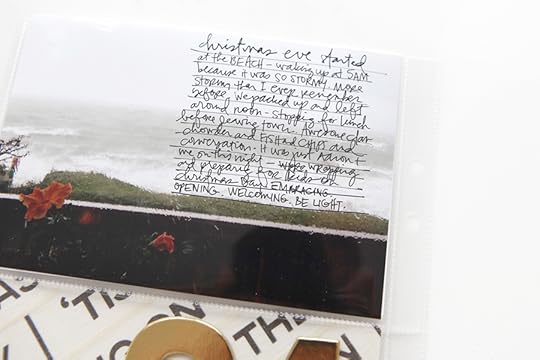 christmas eve started
at the BEACH - waking up at 5AM
because it was SO STORMY. MORE
STORMY than I ever remember
before. We packed up and left
around noon - stopping for lunch
before leaving town. Awesome clam
chowder and FISH and CHIPS and
conversation. It was just Aaron &
me on this night - wrapping
and preparing for kids on
christmas Day. EMBRACING.
OPENING. WELCOMING. BE LIGHT.
'TIS
ON
THE